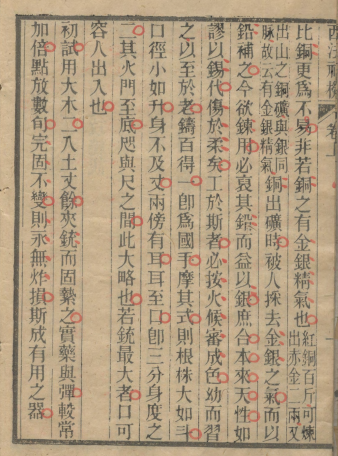 西法神機 卷上
比銅更爲不易非若銅之有金銀精氣也紅銅百斤可煉
出赤金二兩又
出山之銅礦與銀同
脉故云有金銀精氣銅出礦時被人採去金銀之氣而以
鉛補之今欲鍊用必裒其鉛而益以銀庶合本來天性如
謬以錫代傷於柔矣工於斯者必按火候審成色幼而習
之以至於老鑄百得一卽爲國手摩其式則根株大如斗
口徑小如升身不及丈兩傍有耳耳至口卽三分身度之
二其火門至底咫與尺之間此大略也若銃最大者口可
容人出入也
初試用大木二入土丈餘夾銃而固縶之實藥與彈較常
加倍點放數旬完固不變則永無炸損斯成有用之器